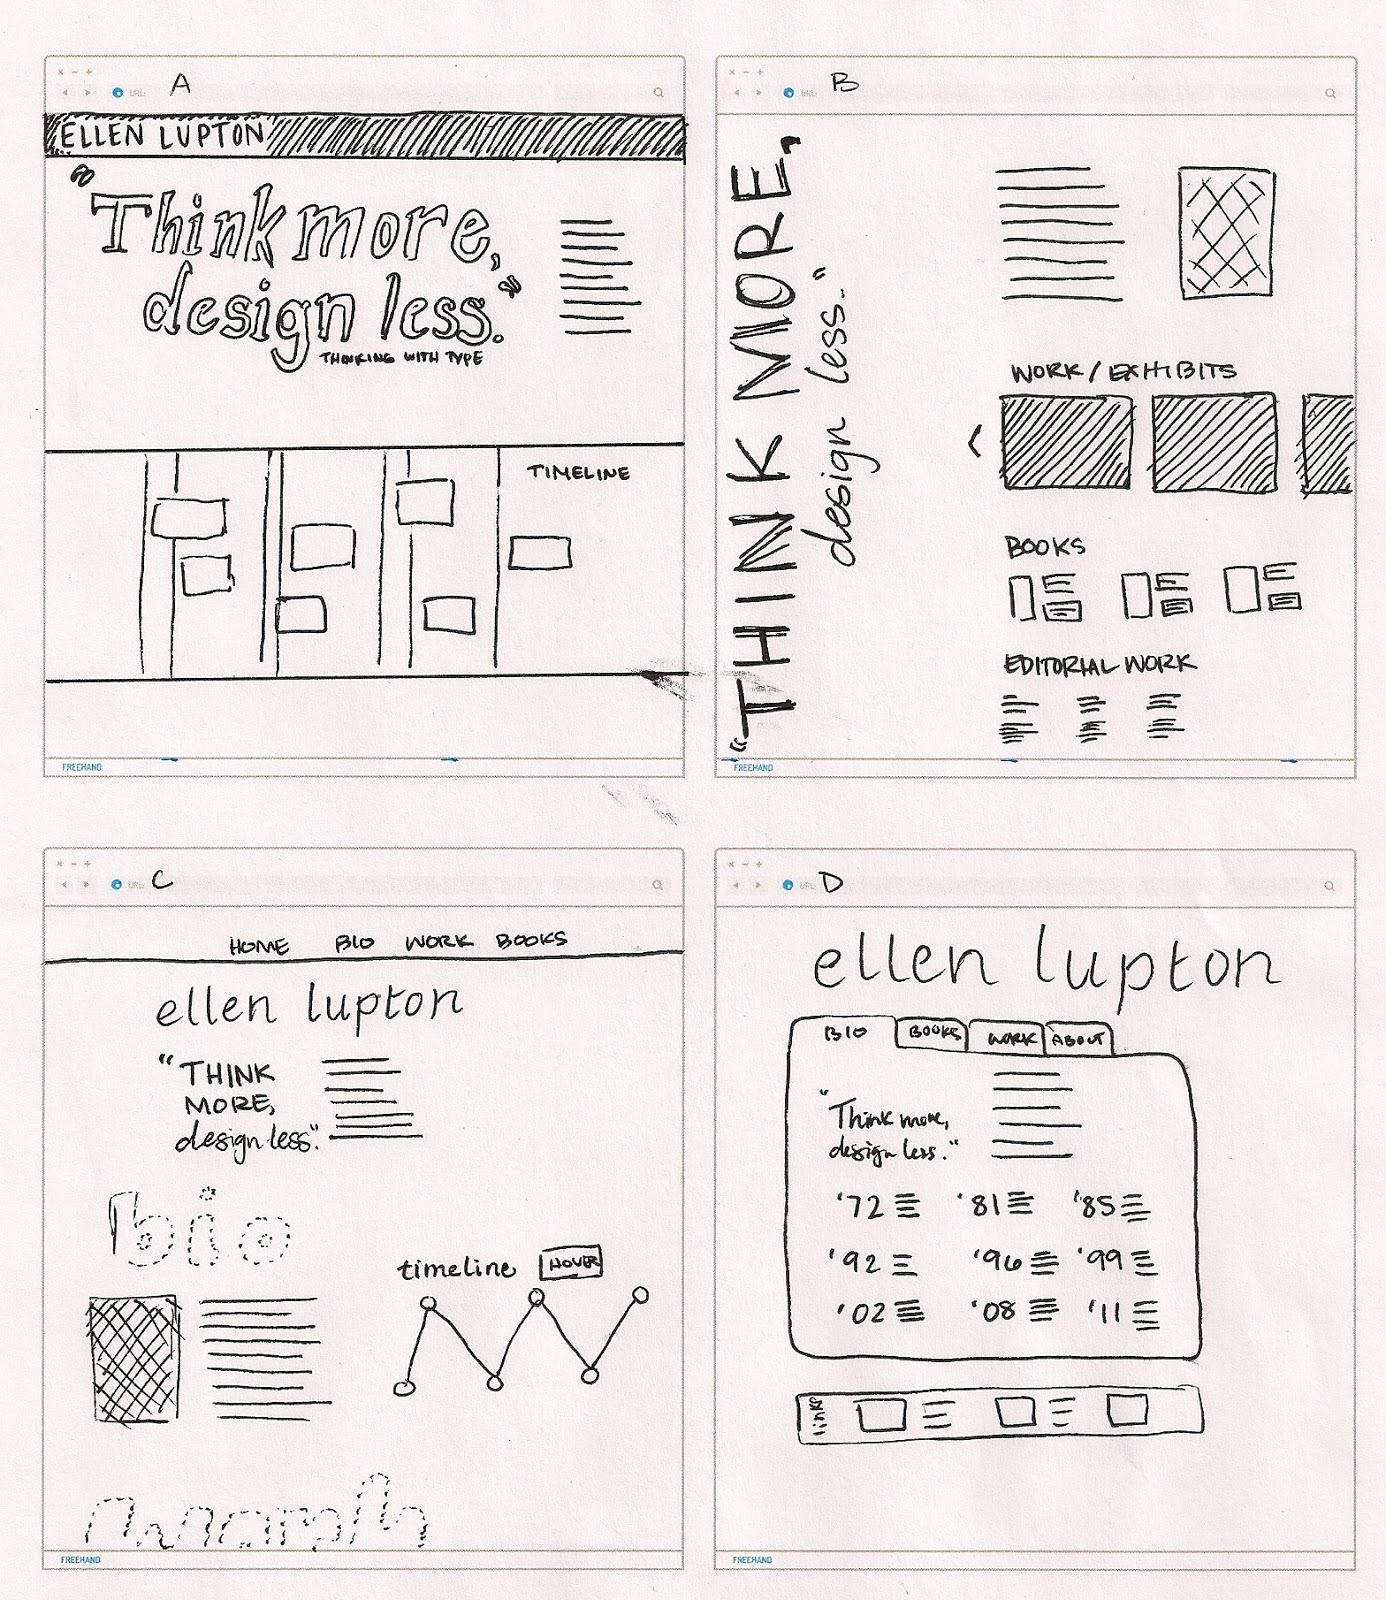 A
URL:
ELLEN LUPTON
"Think more,
design less."
THINKING WITH TYPE
TIMELINE
FREEHAND
B
URL:
"THINK MORE,
design less."
WORK / EXHIBITS
BOOKS
EDITORIAL WORK
FREEHAND
C
URL:
HOME BIO WORK BOOKS
ellen lupton
"THINK
MORE,
design less."
bio
timeline HOVER
FREEHAND
D
URL:
ellen lupton
BIO BOOKS WORK ABOUT
"Think more,
design less."
'72 '81 '85
'92 '96 '99
'02 '08 '11
links
FREEHAND